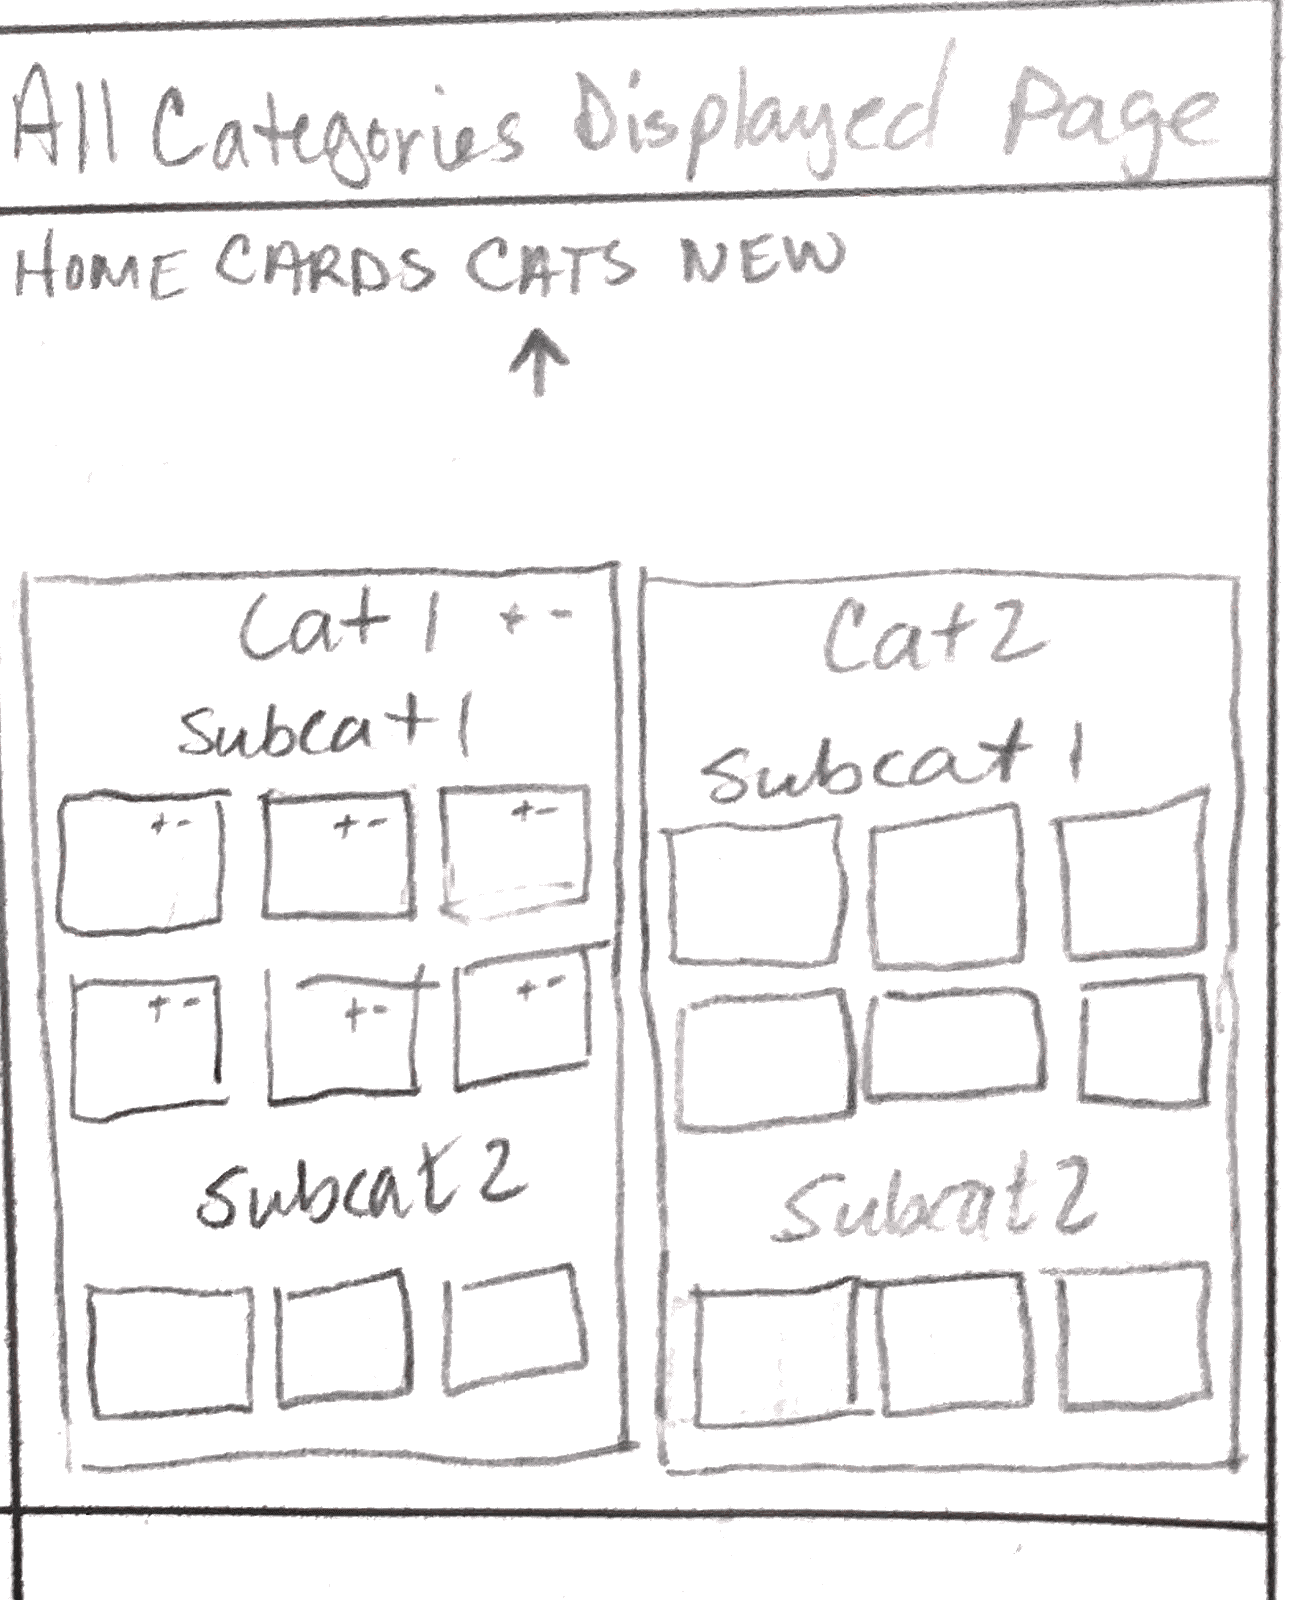 All Categories Displayed Page
HOME CARDS CATS NEW
Cat 1 + -
Subcat 1
+ - + - + -
+ - + - + -
Subcat 2
Cat 2
Subcat 1
Subcat 2